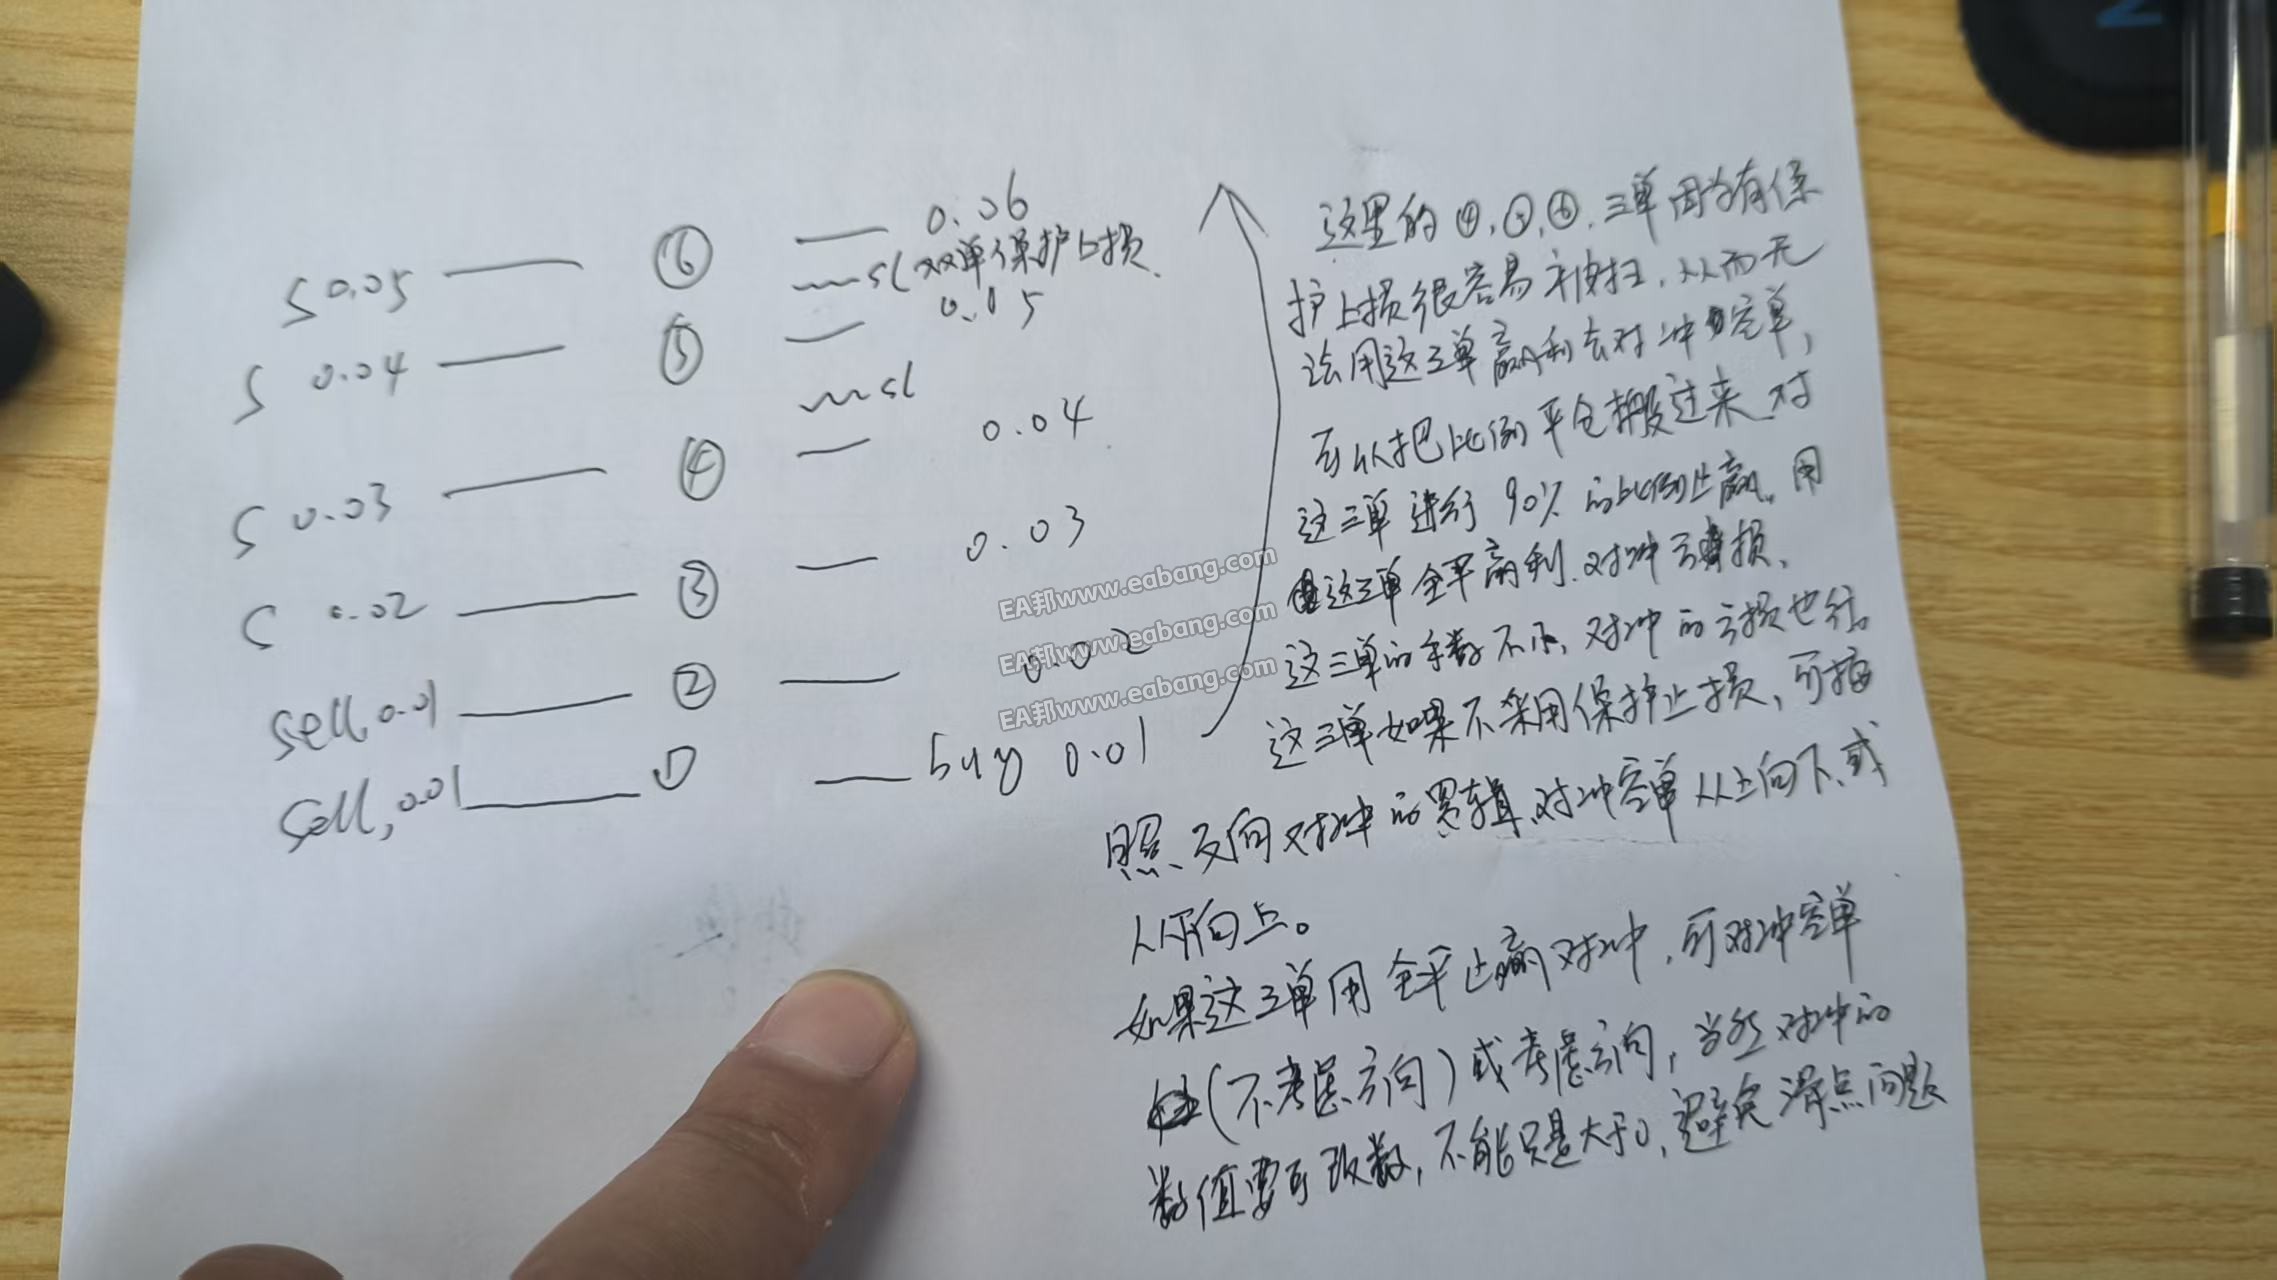 0.06
S 0.05 ⑥ sl 双单保护止损.
0.05
S 0.04 ⑤
sl
0.04
S 0.03 ④
0.03
S 0.02 ③
0.02
sell, 0.01 ②
buy 0.01
sell, 0.01 ①
这里的④,⑤,⑥,三单因为有保
护止损很容易被扫,从而无
法用这三单赢利去对冲空单,
可以把比例平仓搬过来.对
这三单进行90%的比例止赢。用
这三单全平赢利.对冲亏损.
这三单的手数不小,对冲的亏损也
这三单如果不采用保护止损,可按
照、反向对冲的逻辑,对冲空单从上向下,或
从下向上。
如果这三单用全平止赢对冲,可对冲空单
(不考虑方向)或考虑方向,当然对冲的
数值要可改数,不能只是大于0,避免滑点问题
EA邦www.eabang.com
EA邦www.eabang.com
EA邦www.eabang.com